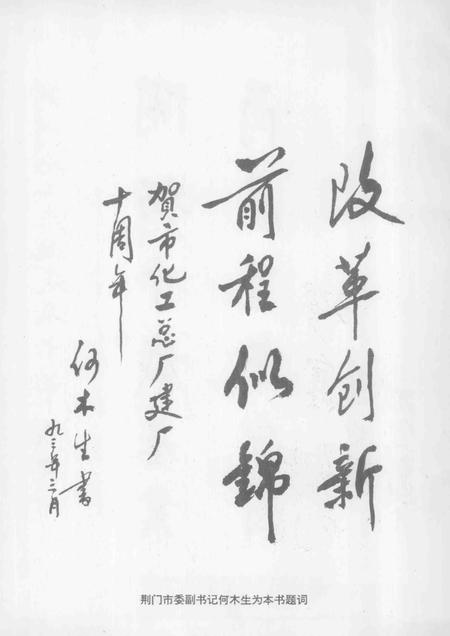 改革创新
前程似錦
賀市化工总厂建厂
十周年
何木生書
九三年三月
荆门市委副书记何木生为本书题词